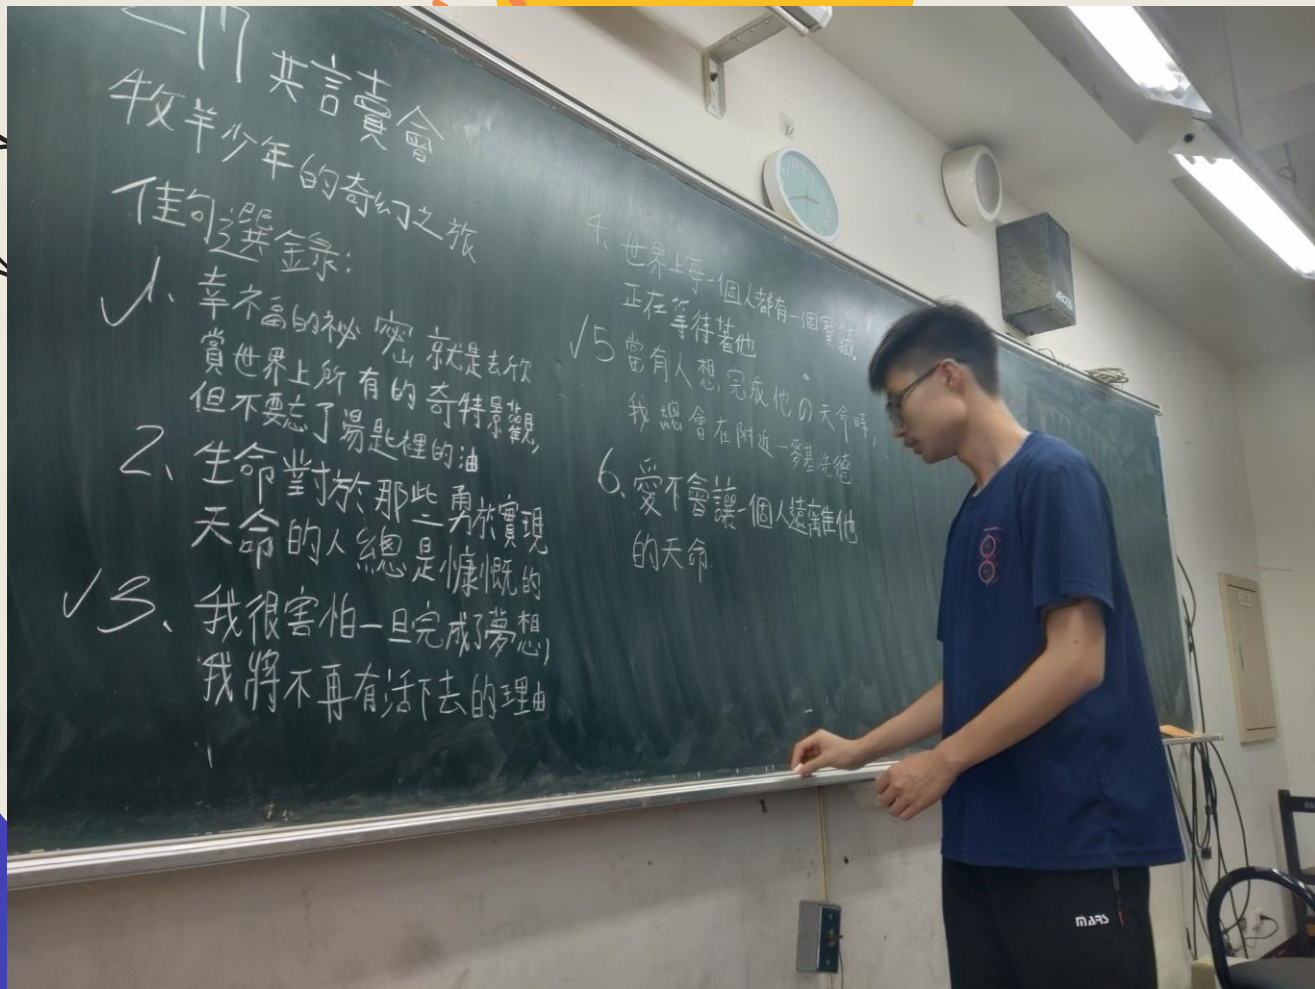 共言賣會
牧羊少年的奇幻之旅
佳句選錄:
✓1、幸福的祕密就是去欣
賞世界上所有的奇特景觀,
但不要忘了湯匙裡的油
2、生命對於那些勇於實現
天命的人總是慷慨的
✓3、我很害怕一旦完成了夢想,
我將不再有活下去的理由
4、世界上每一個人都有一個寶藏,
正在等待著他
✓5當有人想完成他の天命時,
我總會在附近—麥基洗德
6、愛不會讓一個人遠離他
的天命
MARS